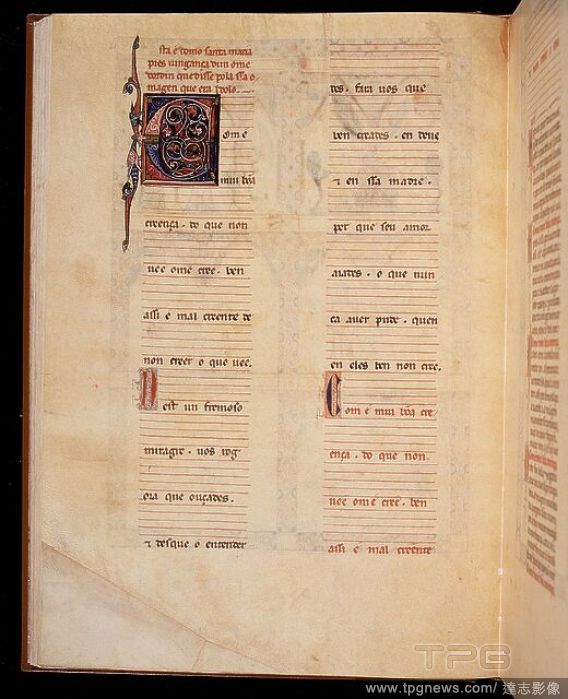 sta é como santa maria
pres vingança dun ome
dordin que disse pola ssa o
magen que era ydolo.
ome
mui bõa
creença. do que non
uee ome cree. ben
assi e mal creente de
non creer o que uee.
D est un fremoso
miragre. uos rog
ora que ouçades.
⁊ desque o entender
des. fara uos que
ben creades. en deus
⁊ en ssa madre.
per que seu amor
aiades. o que nun
ca auer pude. quen
en eles ben non cree.
Com e mui bõa cre
ença. do que non
uee ome cree. ben
assi e mal creente
TPG
www.tpgnews.com/ 達志影像